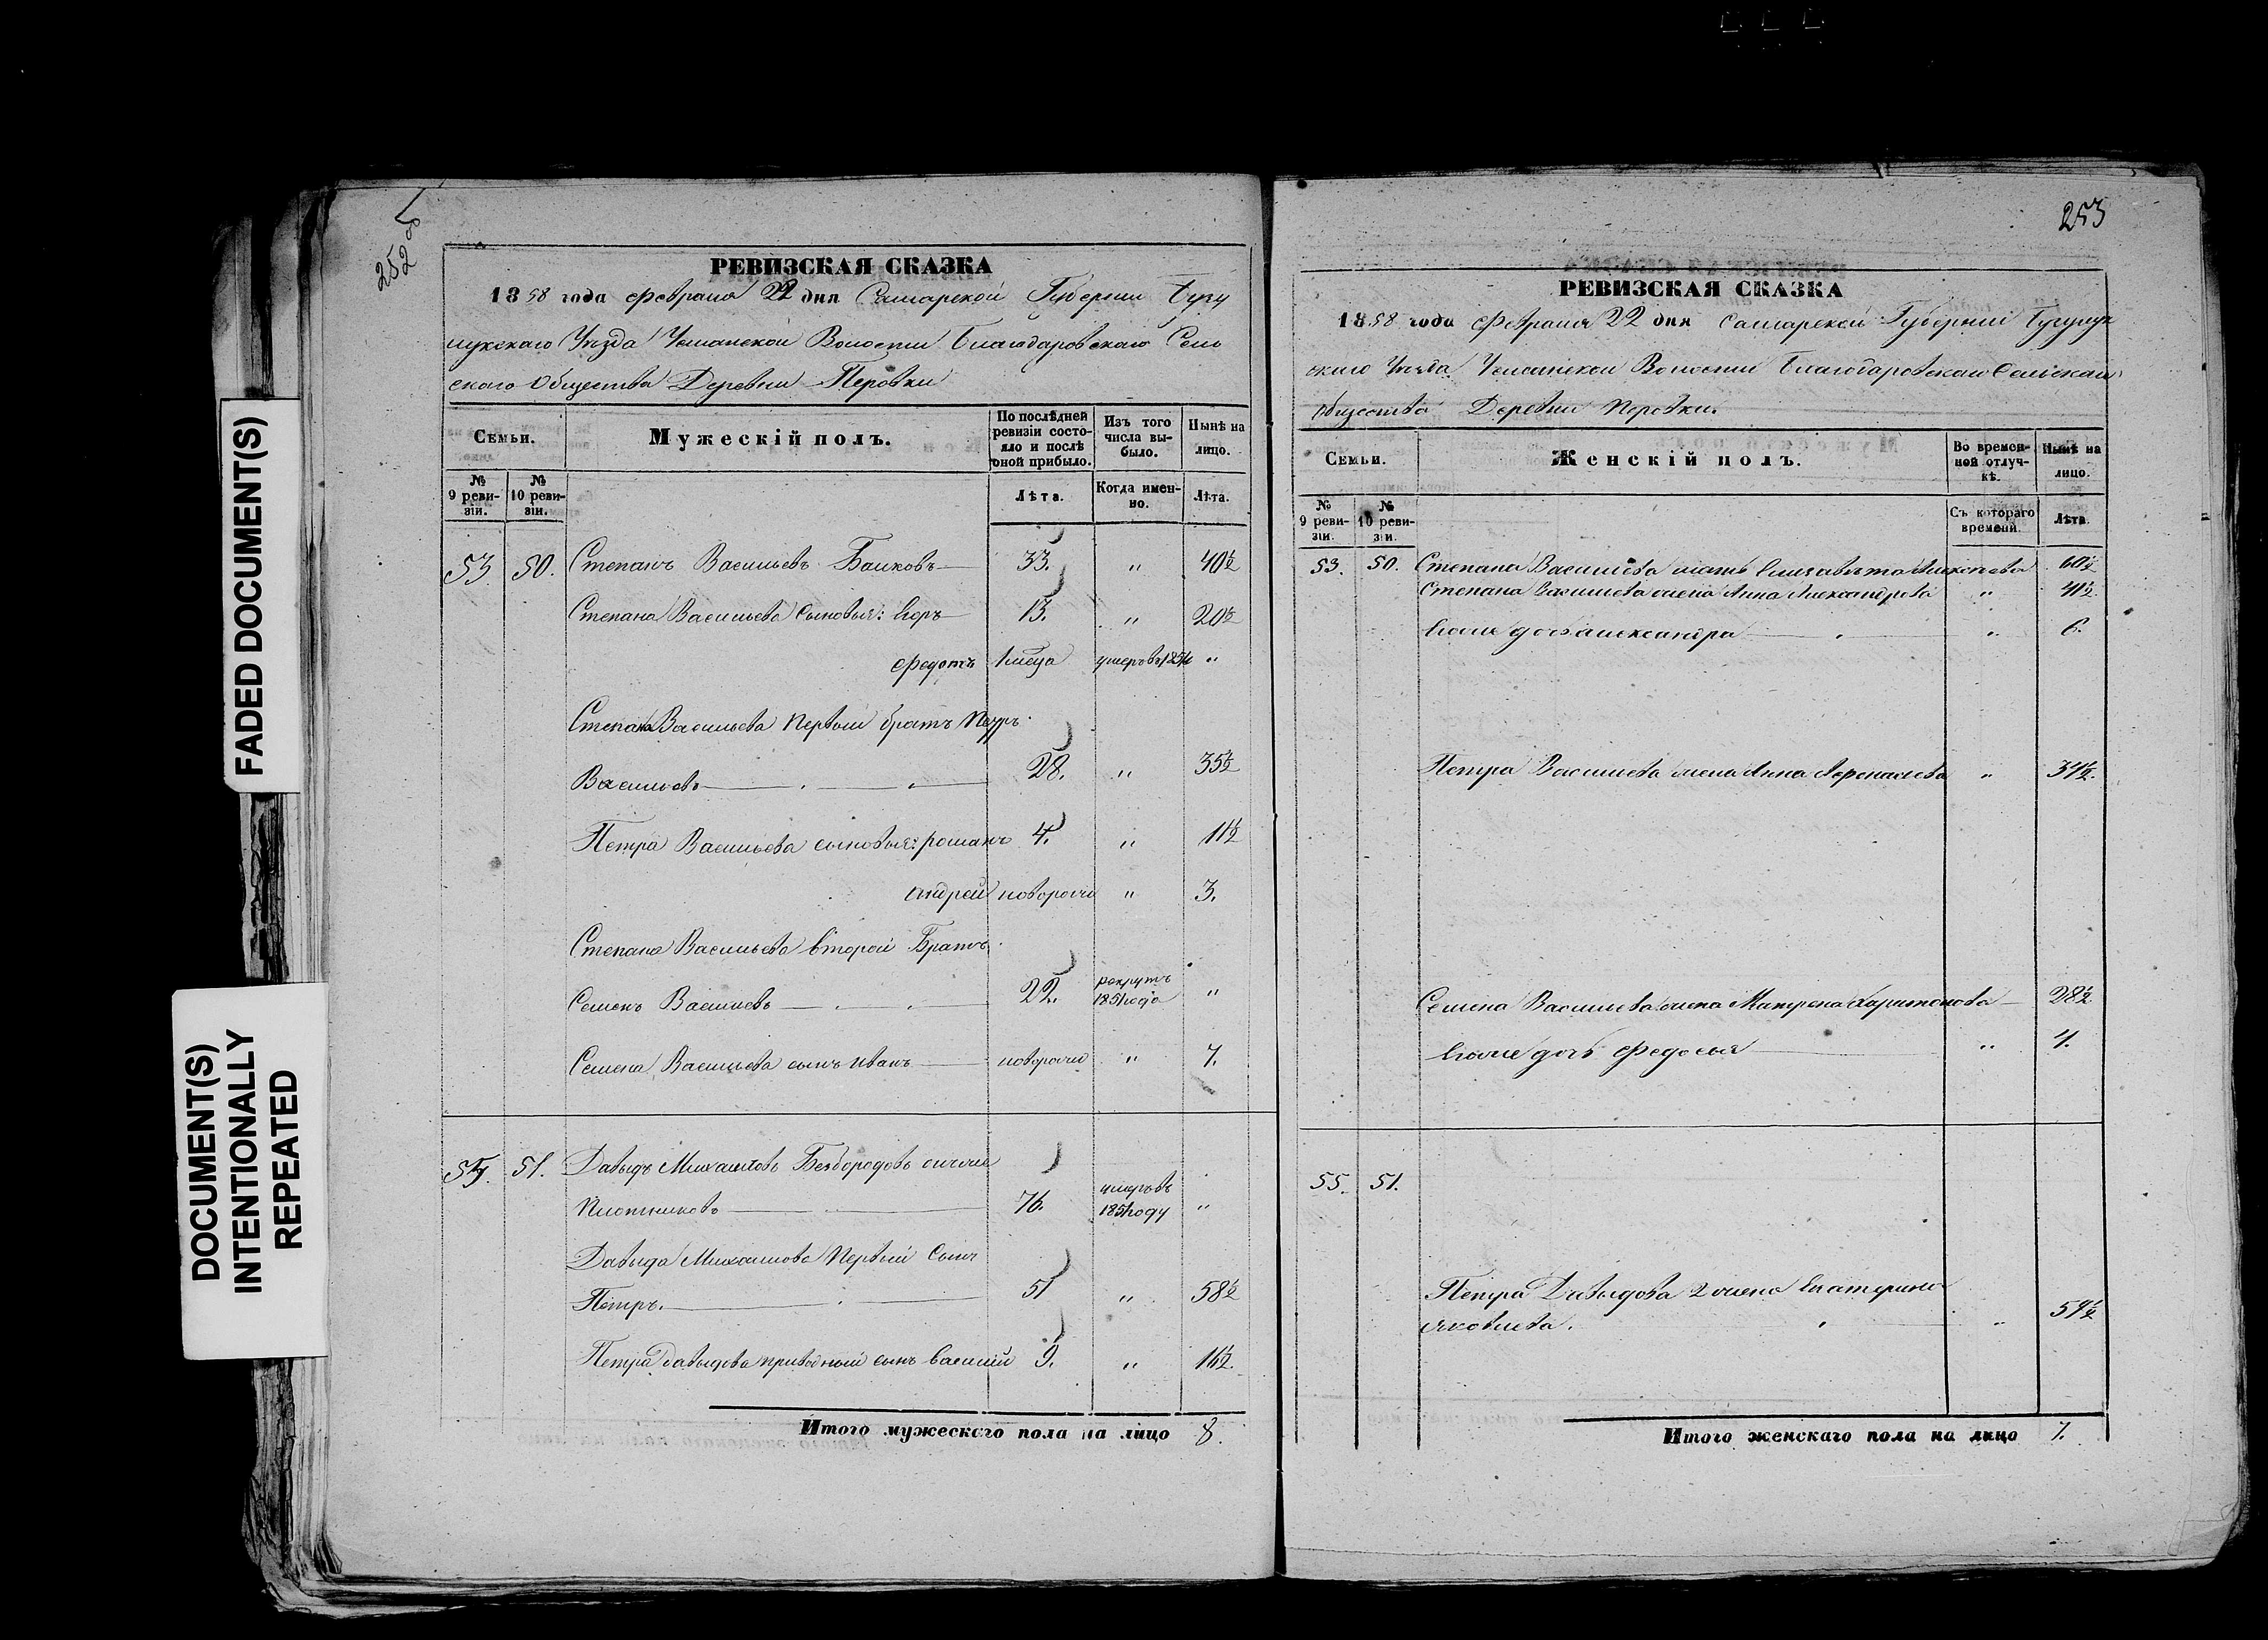 252 об
РЕВИЗСКАЯ СКАЗКА
1858 года Февраля 22 дня Самарской Губернии Бугу
Уѣзда Волости Благодаровскаго Сель
скаго Общества Деревни Перовки
Семьи.
Мужескій полъ.
По послѣдней ревизіи состояло и послѣ оной прибыло.
Изъ того числа выбыло.
Нынѣ на лицо.
№ 9 ревизіи.
№ 10 ревизіи.
Лѣта.
Когда именно.
Лѣта.
53 50. Степанъ Васильевъ 33. " 40½
Степана Васильева сыновья: Егоръ 13. " 20½
Федотъ 1 меца умеръ въ "
Степана Васильева Первый братъ Петръ
Васильевъ 28. " 35½
Петра Васильева сыновья: романъ 4. " 11½
Андрей новорожд " 3.
Степана Васильева второй Братъ
Семенъ Васильевъ 22. рекрутъ 1851 года "
Семена Васильева сынъ иванъ новорожд " 7.
51. Давыдъ Михайловъ Безбородовъ онъже
Плотниковъ 76. умеръ въ 1851 году "
Давыда Михайлова Первый Сынъ
Петръ. 51 " 58½
Петра давыдова приводный сынъ василий 9. " 16½.
Итого мужескаго пола на лицо 8.
253
РЕВИЗСКАЯ СКАЗКА
1858 года Февраля 22 дня Самарской Губерніи Бугурук
Уѣзда Волости Благодаровскаго Сельскаго
общества Деревни Перовки.
Семьи.
Женскій полъ.
Во временной отлучкѣ.
Нынѣ на лицо.
№ 9 ревизіи.
№ 10 ревизіи.
Съ котораго времени.
Лѣта.
53. 50. Степана Васильева мать Елизавѣта Алексѣева 60½
Степана Васильева жена Анна Александрова " 41½
Егоже дочь александра " 6.
Петра Васильева жена Анна " 34½.
Семена Васильева жена Матрена Харитонова 28½
Егоже дочь Федосья "
55. 51.
Петра Давыдова 2 жена Екатерина
яковлева. "
Итого женскаго пола на лицо 7.
FADED DOCUMENT(S)
DOCUMENT(S)
INTENTIONALLY
REPEATED